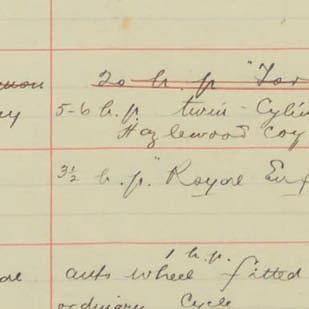 20 h. p "For
5-6 h. p. twin - Cylin
Hazlewood Coy
3½ h. p. "Royal En
1 h. p.
auto wheel fitted
ordinary Cycle